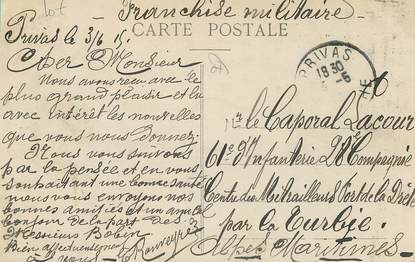 Franchise militaire
CARTE POSTALE
Privas le 3/6 15
Cher Monsieur
Nous avons reçu avec le
plus grand plaisir et lu
avec intérêt les nouvelles
que vous nous donnez.
Nous vous suivons
par la pensée et en vous
souhaitant une bonne santé
nous vous envoyons nos
bonnes amitiés et un amical
bonjour de la part des
Messieurs Bobin
Bien affectueusement
à vous
PRIVAS
1830
le Caporal Lacour
61e d'Infanterie 28e Compagnie
Centre des Mitrailleurs Fort de la Drète
par la Turbie.
Alpes Maritimes